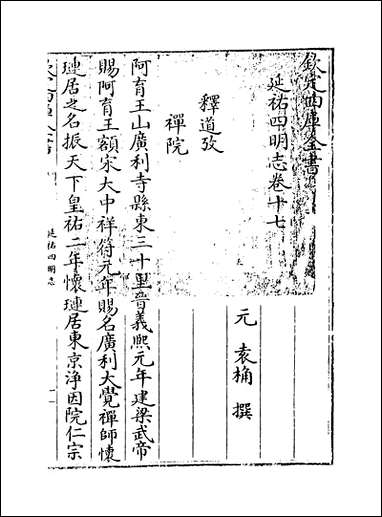 欽定四庫全書
延祐四明志卷十七
元 袁桷 撰
釋道攷
禪院
阿育王山廣利寺縣東三十里晉義熙元年建梁武帝
賜阿育王額宋大中祥符元年賜名廣利大覺禪師懷
璉居之名振天下皇祐二年懷璉居東京淨因院仁宗
延祐四明志